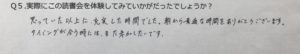 Q5.実際にこの読書会を体験してみていかがだったでしょうか？
思っていた以上に、充実した時間でした。朝から貴重な時間をありがとうございます。
タイミングが合う時には、また参加したいです。